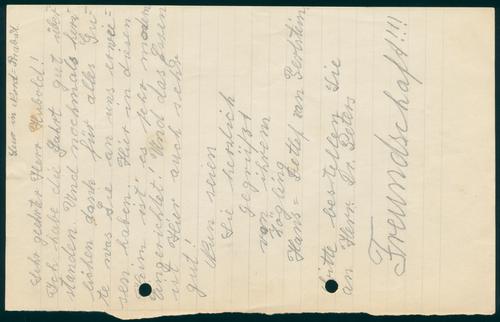 Leur in Nord-Brabat.
Sehr geehrter Herr
Ich habe die Fahrt gut über
standen. Und nochmals herz
lichen Dank für alles Gu-
te was Sie an uns erwie-
sen haben. Hier in diesen
Heim ist es sehr modern
Eingerichtet! Und das Essen
ist Hier auch sehr
gut!
Nun seien
Sie herzlich
gegrüßt
von ihrem
Zögling
Hans-Detlef van
bitte bestellen Sie
an Herrn Dr. Peters
Freundschaft!!!!